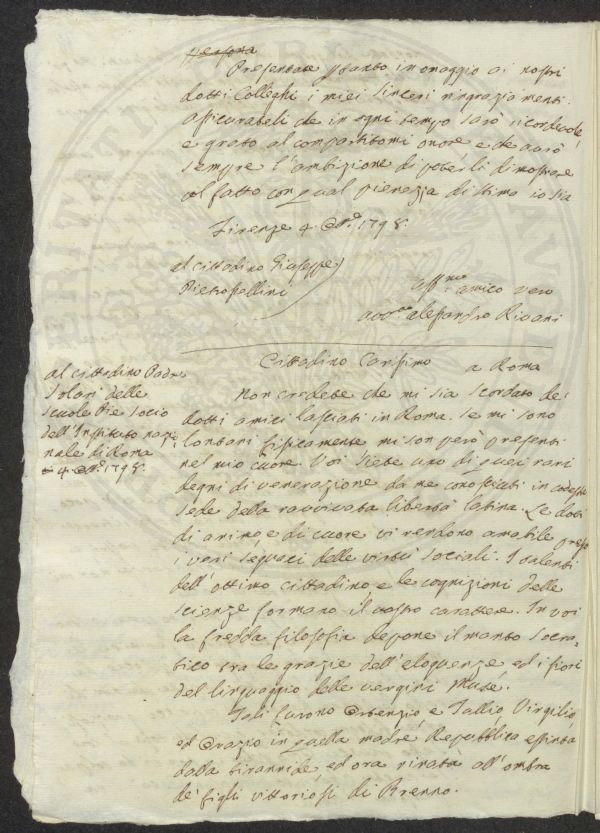 persona
Presentate pertanto in omaggio ai nostri
dotti Colleghi i miei sinceri ringraziamenti.
Assicurateli che in ogni tempo sarò ricordevole
e grato al compartitomi onore e che avrò
sempre l'ambizione di poterli dimostrare
col fatto con qual pienezza di stima io sia
Firenze 4 1798.
al cittadino Giuseppe
Pietro Pellini
aff.mo amico vero
avv.to alesandro Rivani
Cittadino Carissimo
a Roma
al cittadino Padre
Solari delle
Scuole Pie Socio
dell'Instituto nazio-
nale di Roma
4 1798.
Non credete che mi sia scordato de'
dotti amici lasciati in Roma. Se mi sono
lontani fisicamente mi son però presenti
nel mio cuore. Voi siete uno di quei rari
degni di venerazione da me conosciuti in codesta
sede della ravvivata libertà latina. Le doti
di anima e di cuore vi rendono amabile presso
i veri seguaci delle virtù sociali. I talenti
dell'ottimo cittadino e le cognizioni delle
scienze formano il vostro carattere. In voi
la fredda filosofia depone il manto Socra-
tico tra le grazie dell'eloquenza ed i fiori
del linguaggio delle vergini Muse.
Tali furono e Tullio Virgilio
ed Orazio in quella madre Repubblica estinta
dalla tirannide, ed ora rinata all'ombra
de' figli vittoriosi di Brenno.